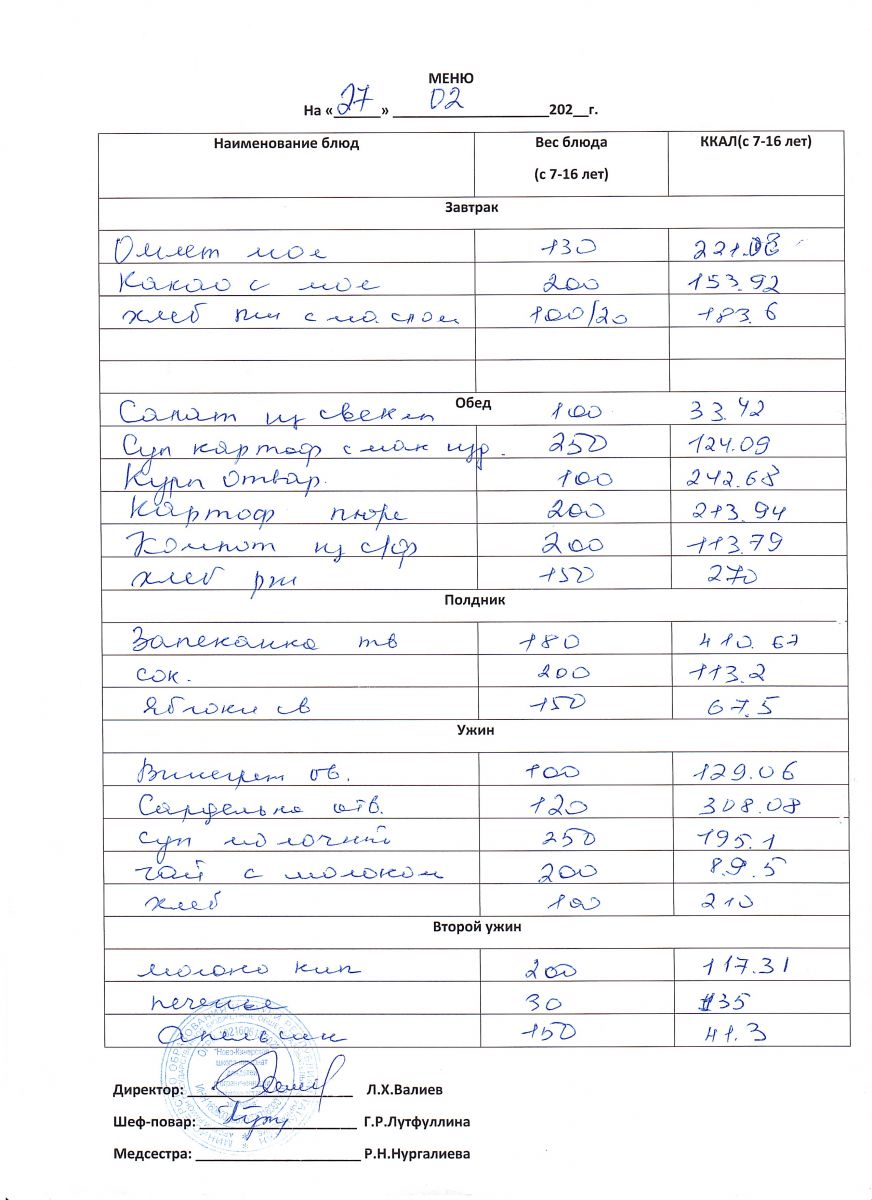 МЕНЮ
На «27» 02 202__г.
Наименование блюд Вес блюда (с 7-16 лет) ККАЛ(с 7-16 лет)
Завтрак
Омлет мол 130 221.08
Какао с мол 200 153.92
хлеб пш с маслом 100/20 183.6
Обед
Салат из свеклы 100 33.42
Суп картоф с мак изр. 250 124.09
Куры отвар. 100 242.68
Картоф пюре 200 213.94
Компот из с/ф 200 113.79
хлеб рж 150 270
Полдник
Запеканка тв 180 410.67
сок. 200 113.2
Яблоки св 150 67.5
Ужин
Винегрет ов. 100 129.06
Сарделька отв. 120 308.08
суп молочный 250 195.1
чай с молоком 200 89.5
хлеб 100 210
Второй ужин
молоко кип 200 117.31
печенье 30 135
Апельсин 150 41.3
Директор: Л.Х.Валиев
Шеф-повар: Г.Р.Лутфуллина
Медсестра: Р.Н.Нургалиева